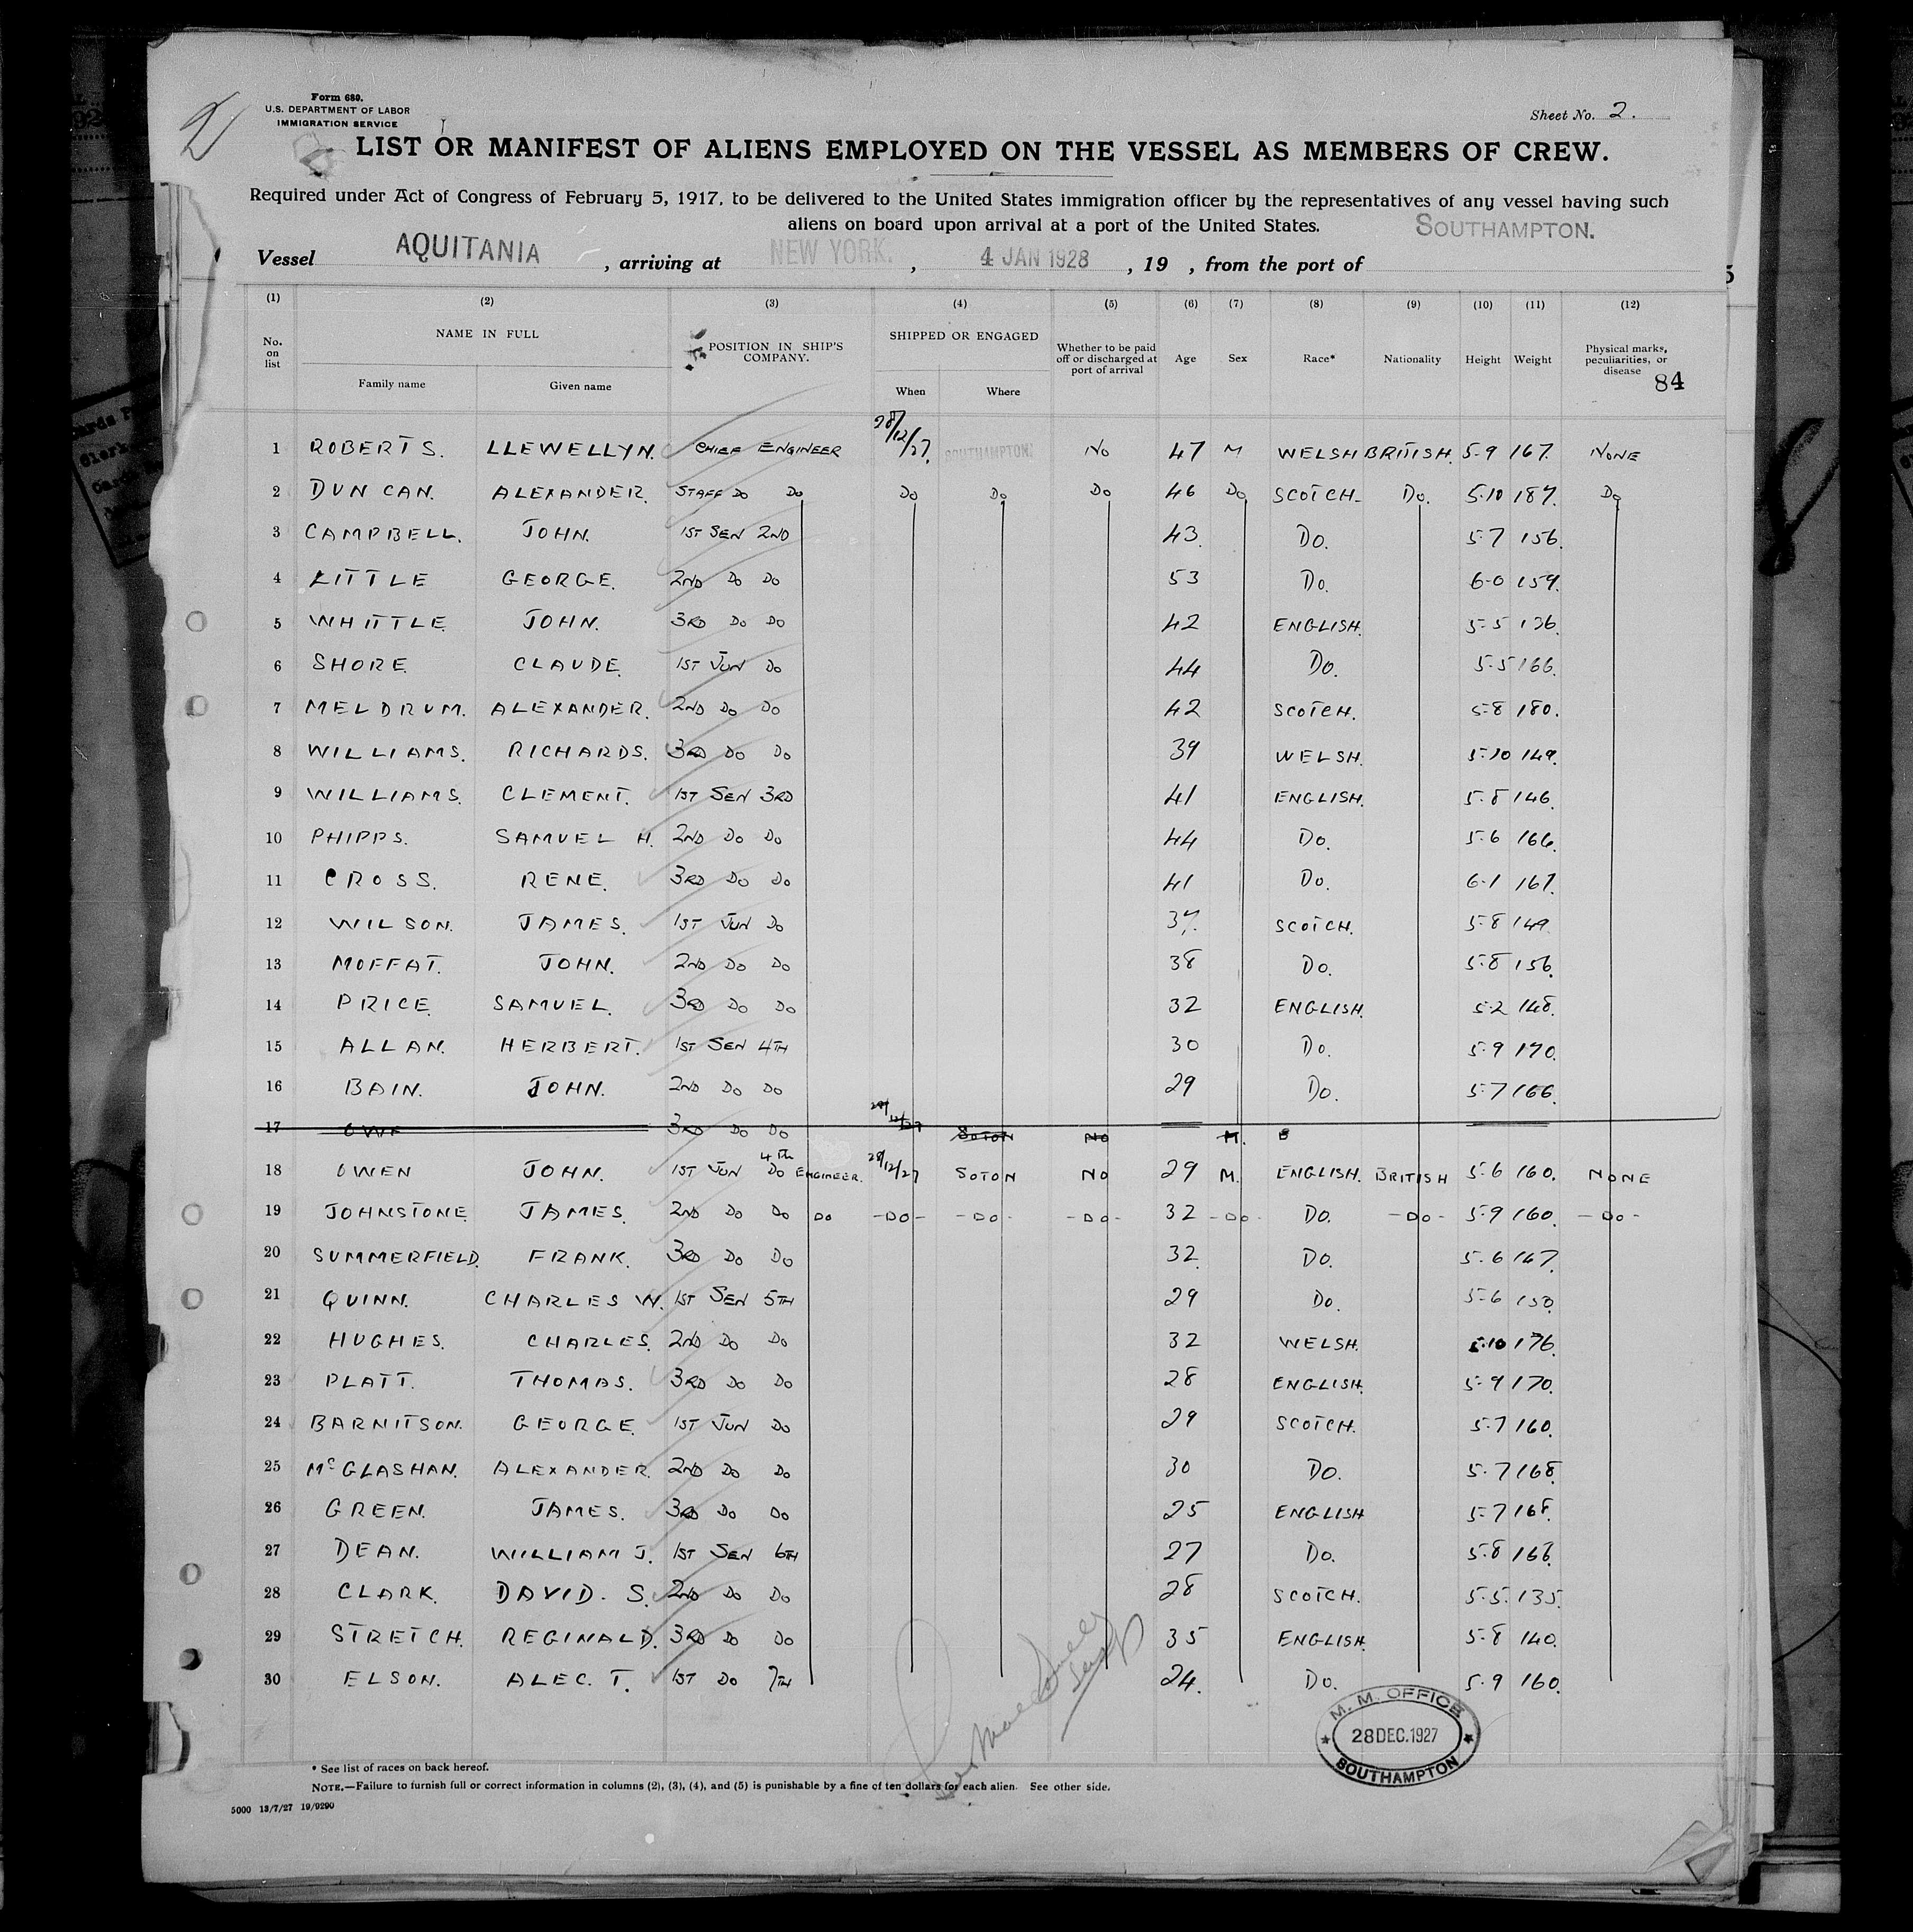 Form 680.
U.S. DEPARTMENT OF LABOR
IMMIGRATION SERVICE
Sheet No. 2.
LIST OR MANIFEST OF ALIENS EMPLOYED ON THE VESSEL AS MEMBERS OF CREW.
Required under Act of Congress of February 5, 1917, to be delivered to the United States immigration officer by the representatives of any vessel having such
aliens on board upon arrival at a port of the United States.
Vessel AQUITANIA, arriving at NEW YORK., 4 JAN 1928, 19 , from the port of SOUTHAMPTON.
(1) (2) (3) (4) (5) (6) (7) (8) (9) (10) (11) (12)
No. on list NAME IN FULL Family name Given name POSITION IN SHIP'S COMPANY. SHIPPED OR ENGAGED When Where Whether to be paid off or discharged at port of arrival Age Sex Race* Nationality Height Weight Physical marks, peculiarities, or disease
84
1 ROBERTS. LLEWELLYN. CHIEF ENGINEER 28/12/27. SOUTHAMPTON. NO 47 M WELSH BRITISH. 5-9 167. NONE
2 DUNCAN. ALEXANDER. STAFF DO DO DO DO DO 46 DO SCOTCH- DO. 5-10 187. DO
3 CAMPBELL. JOHN. 1ST SEN 2ND 43. DO. 5-7 156.
4 LITTLE GEORGE. 2ND DO DO 53 DO. 6-0 159.
5 WHITTLE. JOHN. 3RD DO DO 42 ENGLISH. 5-5 136.
6 SHORE CLAUDE. 1ST JUN DO 44 DO. 5-5 166.
7 MELDRUM. ALEXANDER. 2ND DO DO 42 SCOTCH. 5-8 180.
8 WILLIAMS. RICHARDS. 3RD DO DO 39 WELSH. 5-10 149.
9 WILLIAMS. CLEMENT. 1ST SEN 3RD 41 ENGLISH. 5-8 146.
10 PHIPPS. SAMUEL H. 2ND DO DO 44 DO. 5-6 166.
11 CROSS. RENE. 3RD DO DO 41 DO. 6-1 167.
12 WILSON. JAMES. 1ST JUN DO 37. SCOTCH. 5-8 149.
13 MOFFAT. JOHN. 2ND DO DO 38 DO. 5-8 156.
14 PRICE. SAMUEL. 3RD DO DO 32 ENGLISH. 5-2 148.
15 ALLAN. HERBERT. 1ST SEN 4TH 30 DO. 5-9 170.
16 BAIN. JOHN. 2ND DO DO 29 DO. 5-7 166.
17 OWE 3RD DO DO 28/12/27 SOTON NO M. E
18 OWEN JOHN. 1ST JUN DO 4th ENGINEER. 28/12/27 SOTON NO 29 M. ENGLISH. BRITISH 5-6 160. NONE
19 JOHNSTONE JAMES. 2ND DO DO DO -DO- -DO- -DO- 32 -DO- DO. -DO- 5-9 160. -DO-
20 SUMMERFIELD. FRANK. 3RD DO DO 32. DO. 5-6 147.
21 QUINN. CHARLES W. 1ST SEN 5TH 29 DO. 5-6 150.
22 HUGHES. CHARLES. 2ND DO DO 32 WELSH. 5-10 176.
23 PLATT. THOMAS. 3RD DO DO 28 ENGLISH. 5-9 170.
24 BARNITSON. GEORGE. 1ST JUN DO 29 SCOTCH. 5-7 160.
25 McGLASHAN. ALEXANDER. 2ND DO DO 30 DO. 5-7 168.
26 GREEN. JAMES. 3RD DO DO 25 ENGLISH 5-7 168.
27 DEAN. WILLIAM J. 1ST SEN 6TH 27 DO. 5-8 166.
28 CLARK. DAVID. S. 2ND DO DO 28 SCOTCH. 5-5. 135.
29 STRETCH. REGINALD. 3RD DO DO 35 ENGLISH. 5-8 140.
30 ELSON. ALEC. T. 1ST DO 7TH 24. DO. 5-9 160.
M. M. OFFICE
28 DEC. 1927
SOUTHAMPTON
* See list of races on back hereof.
NOTE.—Failure to furnish full or correct information in columns (2), (3), (4), and (5) is punishable by a fine of ten dollars for each alien. See other side.
5000 13/7/27 19/9290